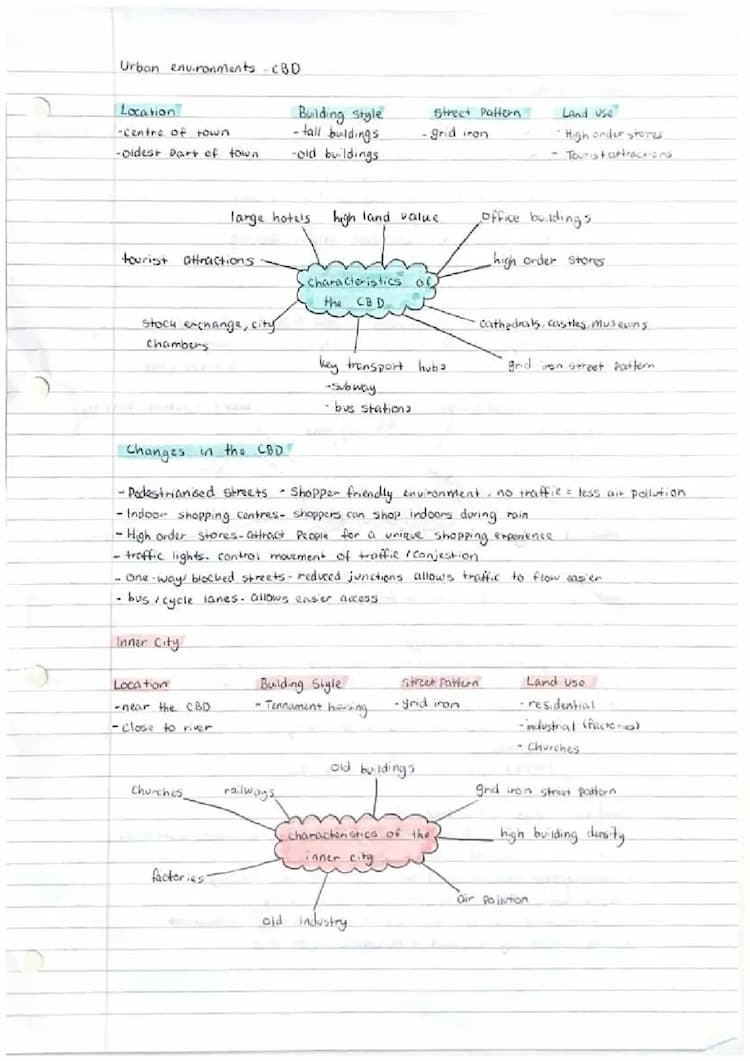 Urban environments - CBD
Location Building Style Street Pattern Land use
-centre of town - tall buildings - grid iron - High order stores
-oldest part of town -old buildings - Tourist attractions
large hotels high land value office buildings
tourist attractions high order stores
characteristics of
the CBD
stock exchange, city
chambers
cathedrals, castles, museums
key transport hubs
-subway
- bus stations
grid iron street pattern
Changes in the CBD
- Pedestrianised streets - Shopper friendly environment, no traffic = less air pollution
- Indoor shopping centres- shoppers can shop indoors during rain
- High order stores-attract people for a unique shopping experience
- traffic lights. control movement of traffic / conjestion
- one-way/ blocked streets - reduced junctions allows traffic to flow easier
- bus / cycle lanes. allows easier access
Inner City
Location Building Style Street Pattern Land use
-near the CBD - Tennament housing - grid iron - residential
- close to river -industrial (factories)
- Churches
old buildings
Churches railways grid iron street pattern
characteristics of the
inner city
high building density
factories
air pollution
old industry